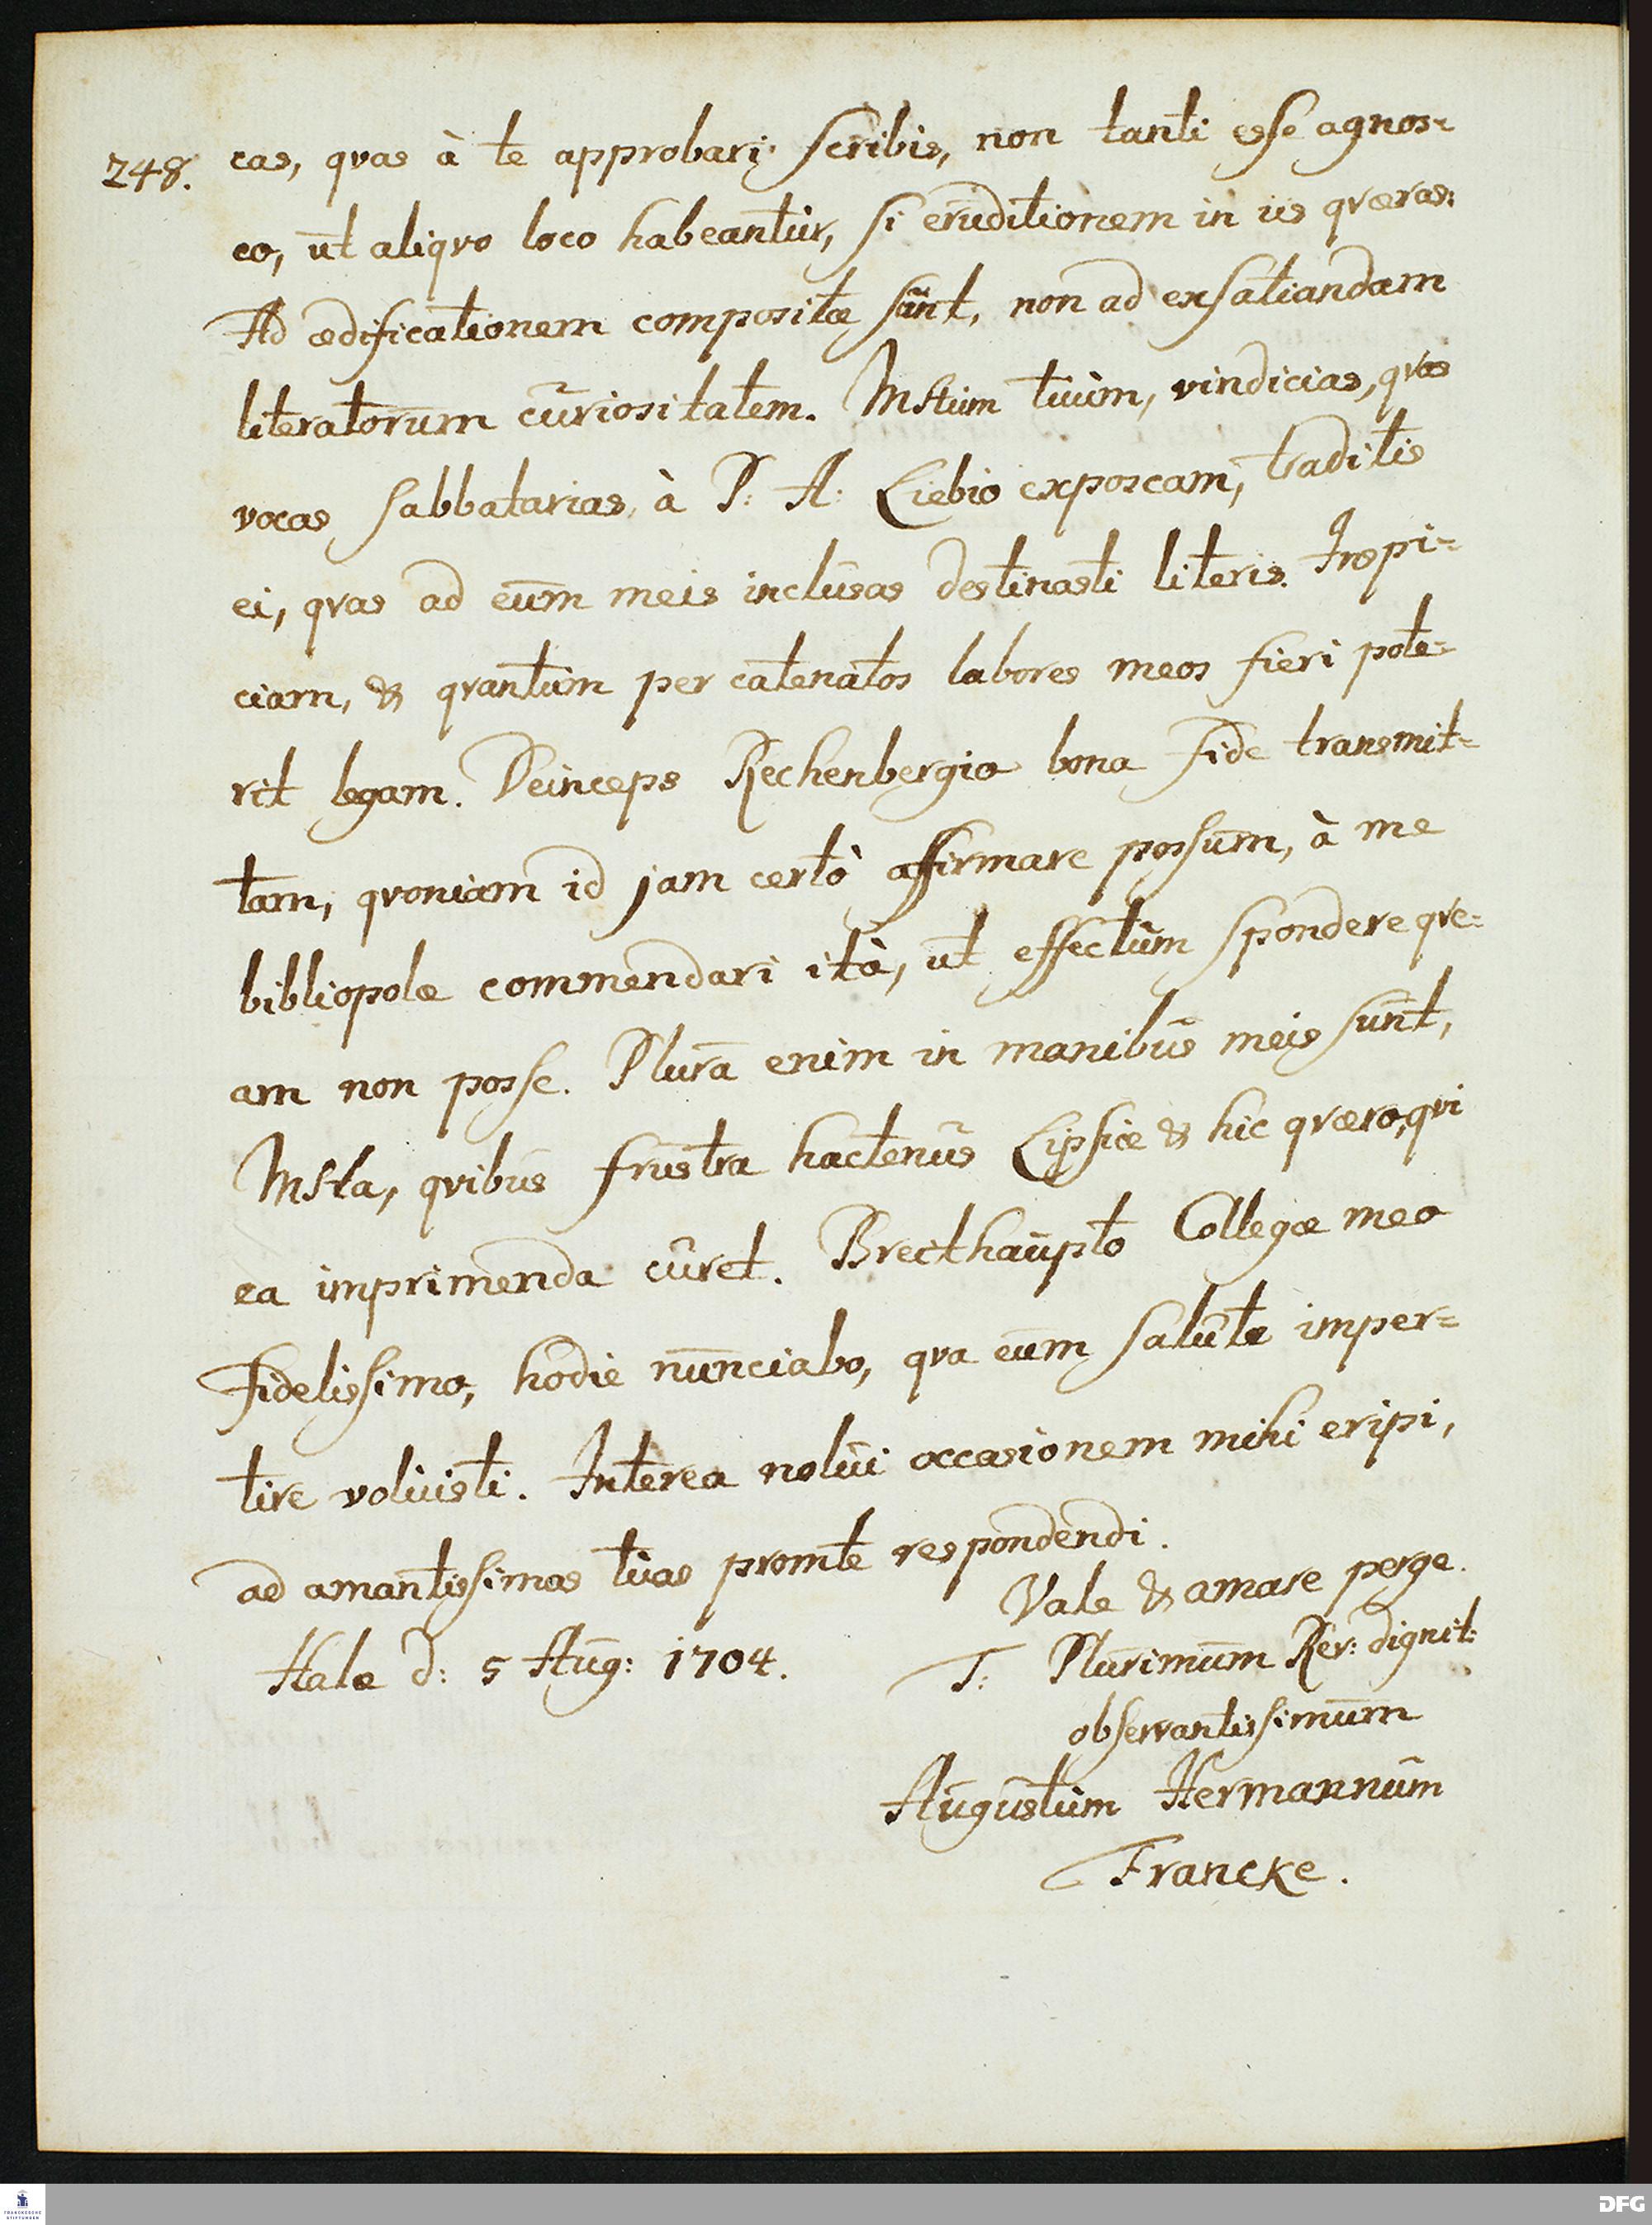 248.
cas, qvas à te approbari scribis, non tanti esse agnos=
co, ut aliqvo loco habeantur, si eruditionem in iis qværas:
Ad ædificationem compositæ sunt, non ad exsatiandam
literatorum curiositatem. Mstum tuum, vindicias, qvas
vocas sabbatarias, à P: A: Liebio exposcam, traditis
ei, qvas ad eum meis inclusas destinasti literis. Inspi=
ciam, & qvantum per catenatos labores meos fieri pote=
rit legam. Deinceps Rechenbergio bona fide transmit=
tam, qvoniam id jam certò affirmare possum, à me
bibliopolæ commendari ità, ut effectum spondere qve=
am non posse. Plura enim in manibus meis sunt,
Msta, qvibus frustra hactenus Lipsiæ & hic qværo, qvi
ea imprimenda curet. Breithaupto Collegæ meo
fidelissimo, hodie nunciabo, qva eum salute imper=
tire voluisti. Interea nolui occasionem mihi eripi,
ad amantissimas tuas promte respondendi.
Vale & amare perge.
Halæ d: 5 Aug: 1704.
T: Plurimum Rev: dignit:
observantissimum
Augustum Hermannum
Francke.
FRANCKESCHE
STIFTUNGEN
DFG